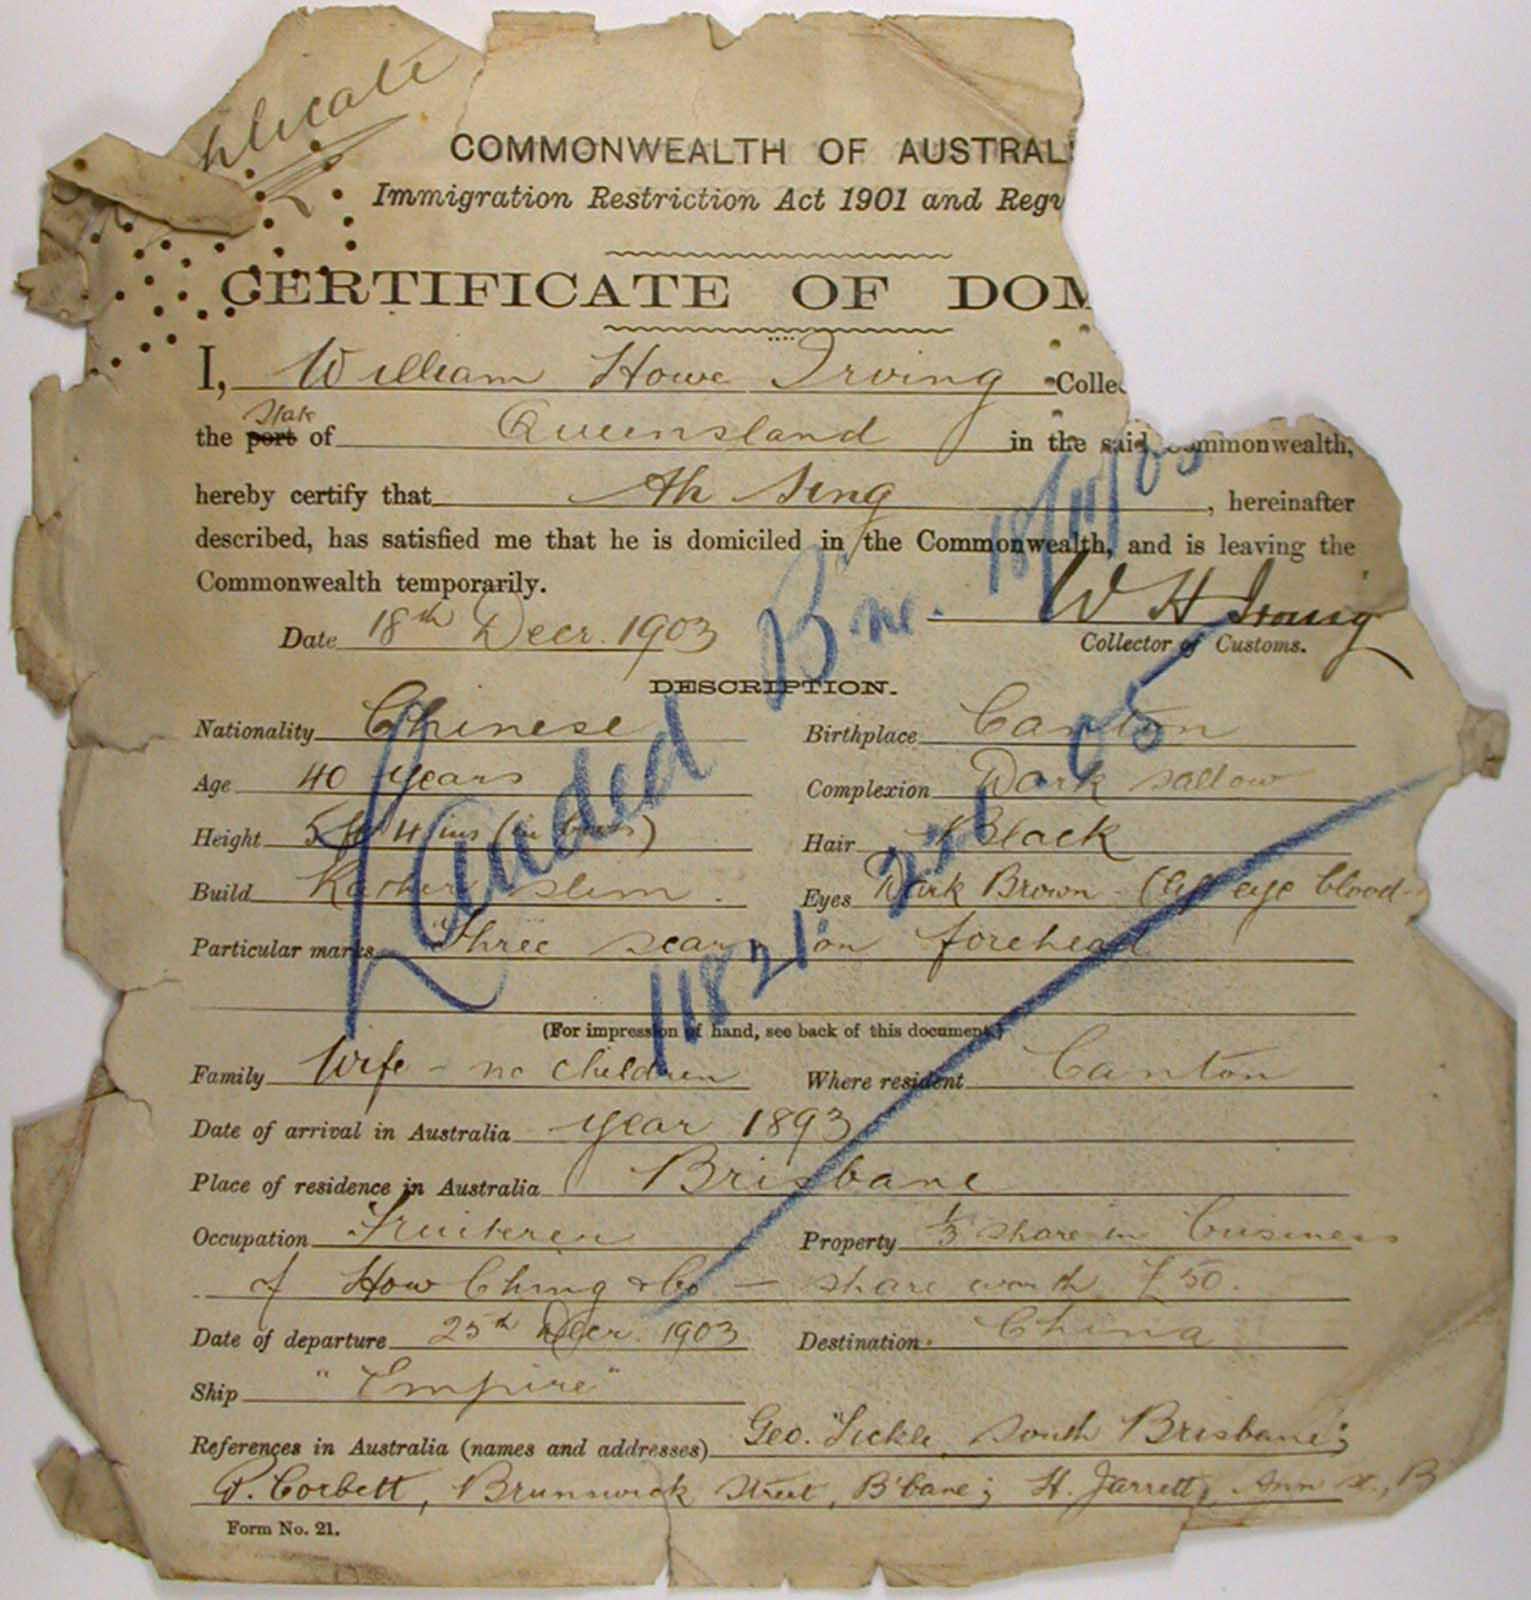 plicate
COMMONWEALTH OF AUSTRAL
Immigration Restriction Act 1901 and Regu
CERTIFICATE OF DOM
I, William Howe Irving Collec
the port State of Queensland in the said Commonwealth,
hereby certify that Ah Sing, hereinafter
described, has satisfied me that he is domiciled in the Commonwealth, and is leaving the
Commonwealth temporarily.
W H Irving
Date 18th Decr. 1903 Collector of Customs.
DESCRIPTION.
Nationality Chinese Birthplace Canton
Age 40 years Complexion Dark sallow
Height 5 ft 4 ins (in boots) Hair Black
Build Rather slim. Eyes Dark Brown - (left eye blood-
Particular marks Three scars on forehead
(For impression of hand, see back of this document.)
Family Wife - no children Where resident Canton
Date of arrival in Australia year 1893
Place of residence in Australia Brisbane
Occupation Fruiterer Property 1/3 share in business
of How Ching & Co - share worth £50.
Date of departure 25th Decr. 1903 Destination China
Ship "Empire"
References in Australia (names and addresses) Geo. Tickle, South Brisbane;
P. Corbett, Brunswick Street, B'bane; H. Jarrett, Ann St., B
Form No. 21.
Landed Bne. 18/11/05